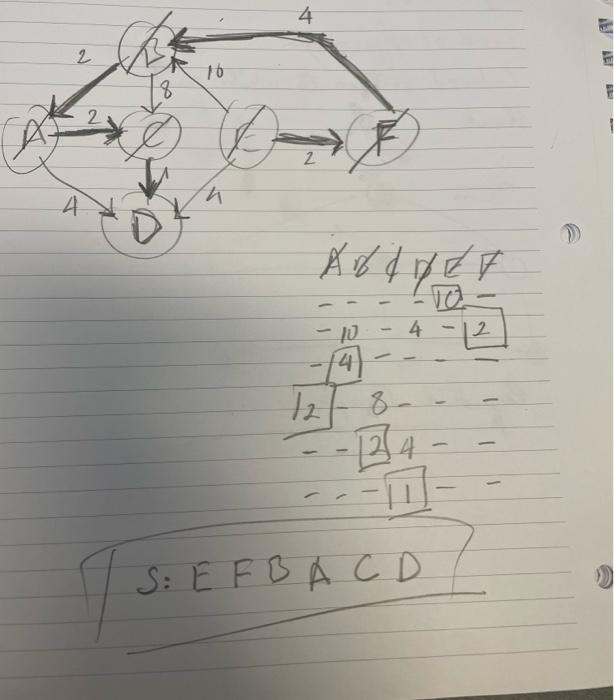 4
B
2
10
8
A
2
C
E
F
2
1
4
4
D
A B C D E F
- - - - 10 -
- 10 - 4 - 2
- 4 - - - -
12 - 8 - - -
- - 2 4 - -
- - - 1 - -
S: E F B A C D